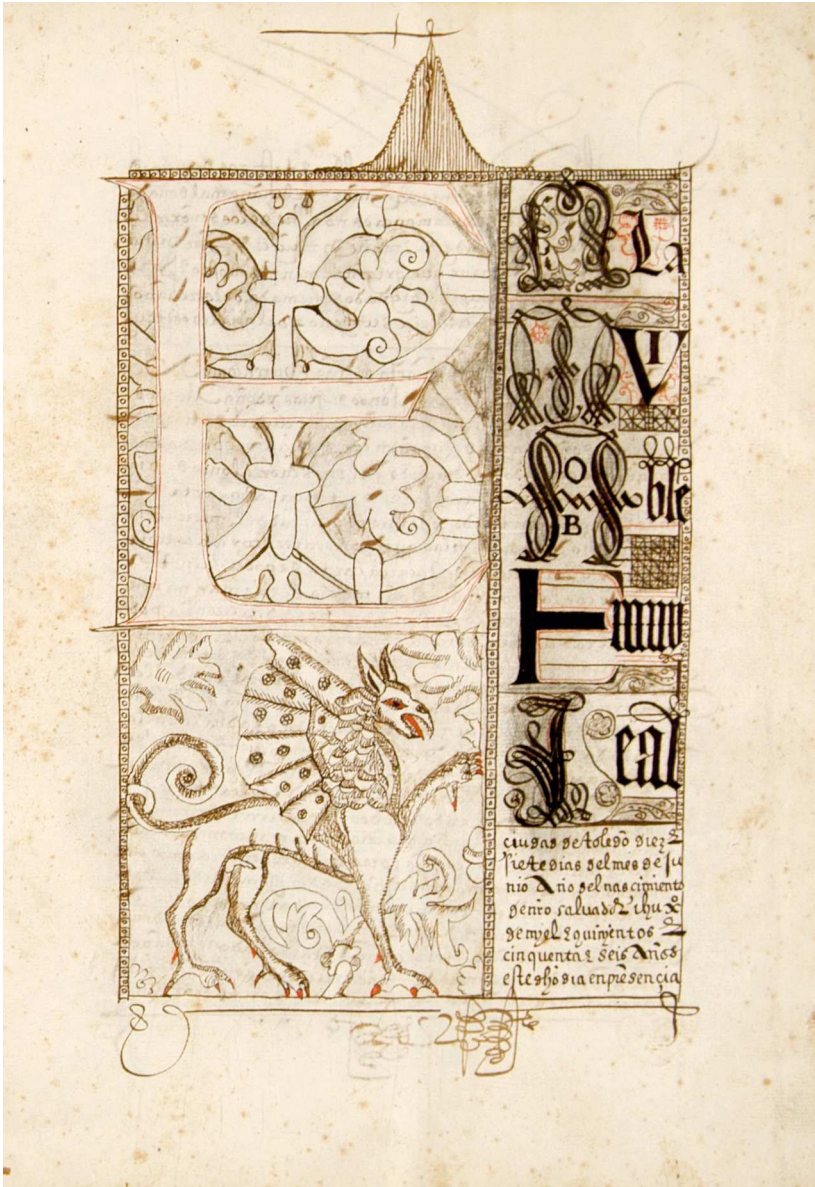 EN La
MVI
NOBle
E muy
Leal
ciudad de toledo diez &
siete dias del mes de Ju
nio Año del nascimiento
de nro salvador ihu xº
de myll & quinyentos &
cinquenta & seis Años
este dho dia en presençia